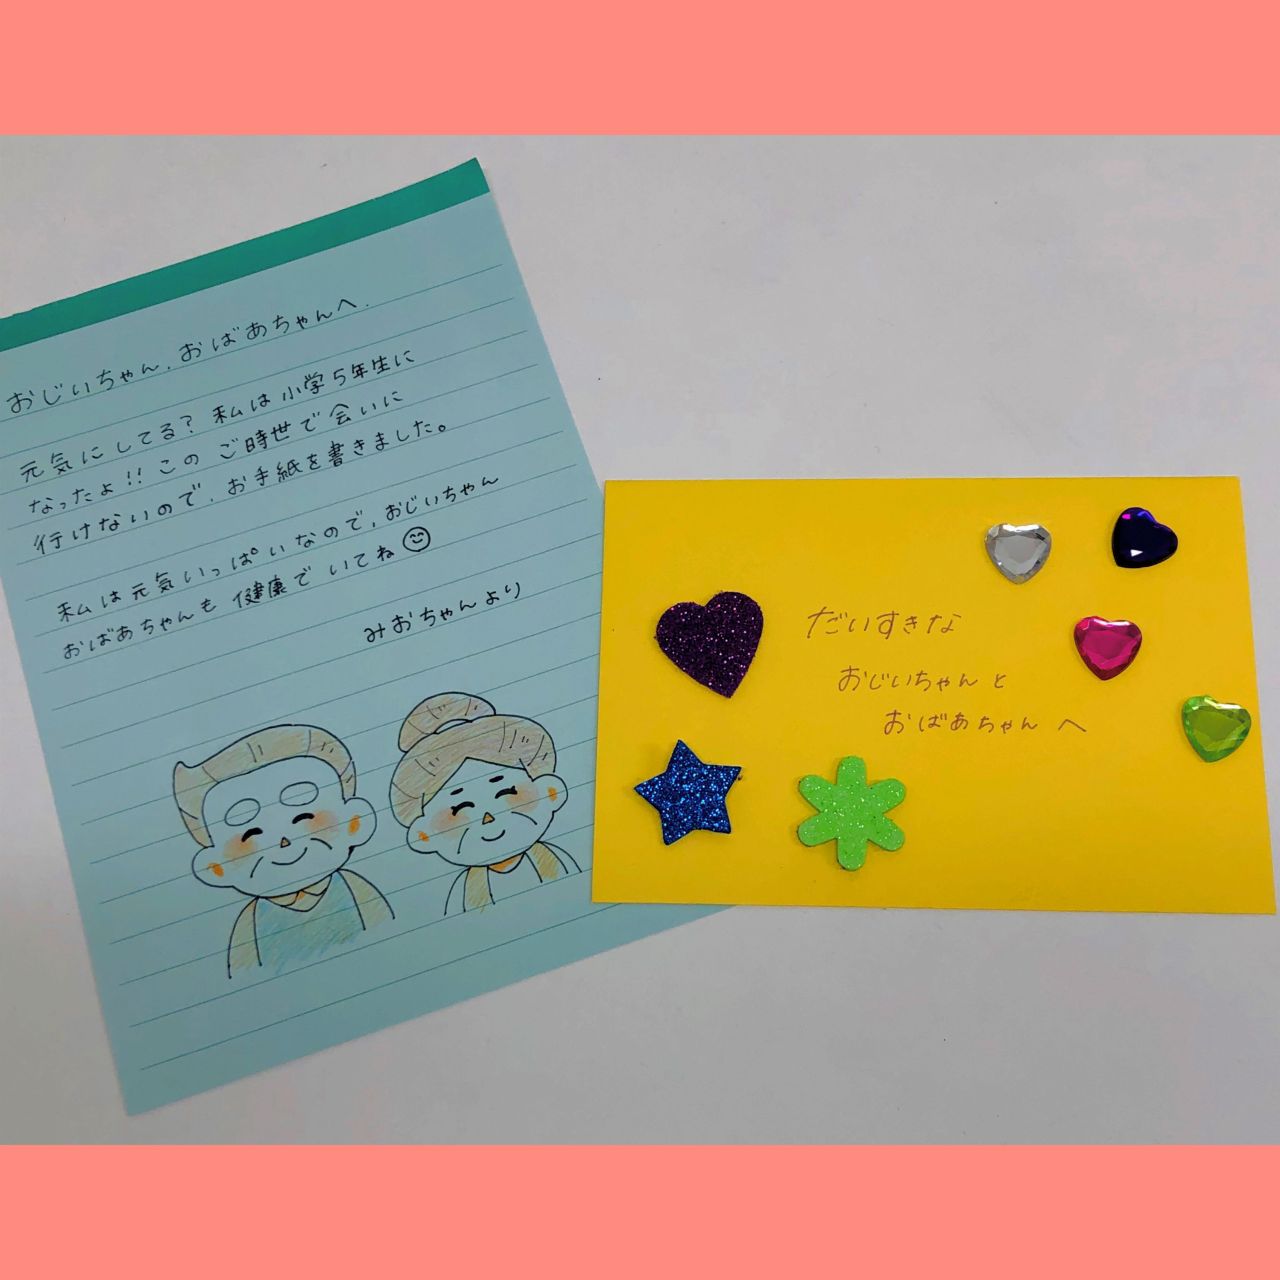 おじいちゃん、おばあちゃんへ.
元気にしてる？私は小学5年生に
なったよ!!このご時世で会いに
行けないので、お手紙を書きました。
私は元気いっぱいなので、おじいちゃん
おばあちゃんも健康でいてね☺
みおちゃんより
だいすきな
おじいちゃんと
おばあちゃんへ